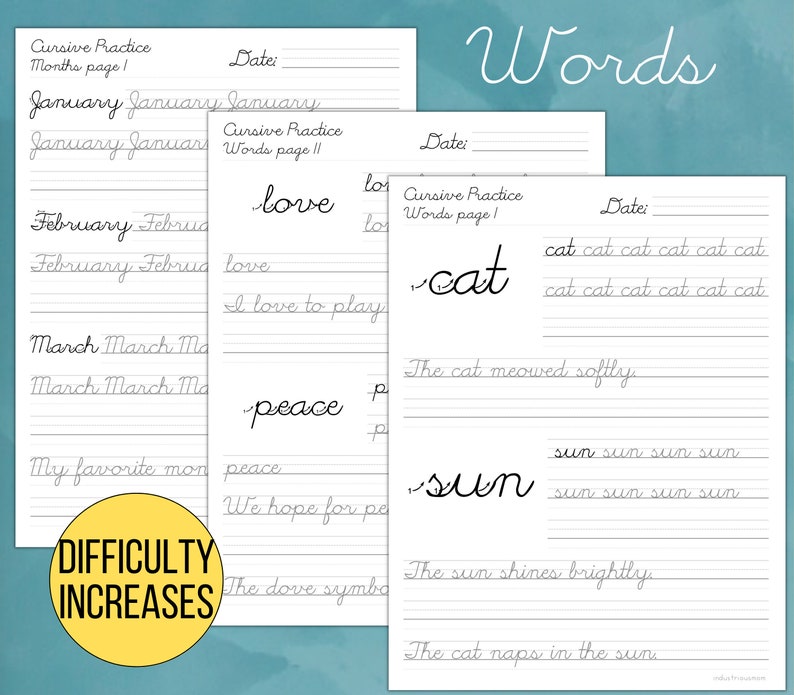 Words
Cursive Practice
Months page 1
Date:
January January January
January January
February February
February February
March March Ma
March March Ma
My favorite mon
Cursive Practice
Words page 11
Date:
love
lo
lo
love
I love to play
peace
p
p
peace
We hope for pe
The dove symbo
Cursive Practice
Words page 1
Date:
cat
cat cat cat cat cat cat
cat cat cat cat cat cat
The cat meowed softly.
sun
sun sun sun sun
sun sun sun sun
The sun shines brightly.
The cat naps in the sun.
industriousmom
DIFFICULTY
INCREASES